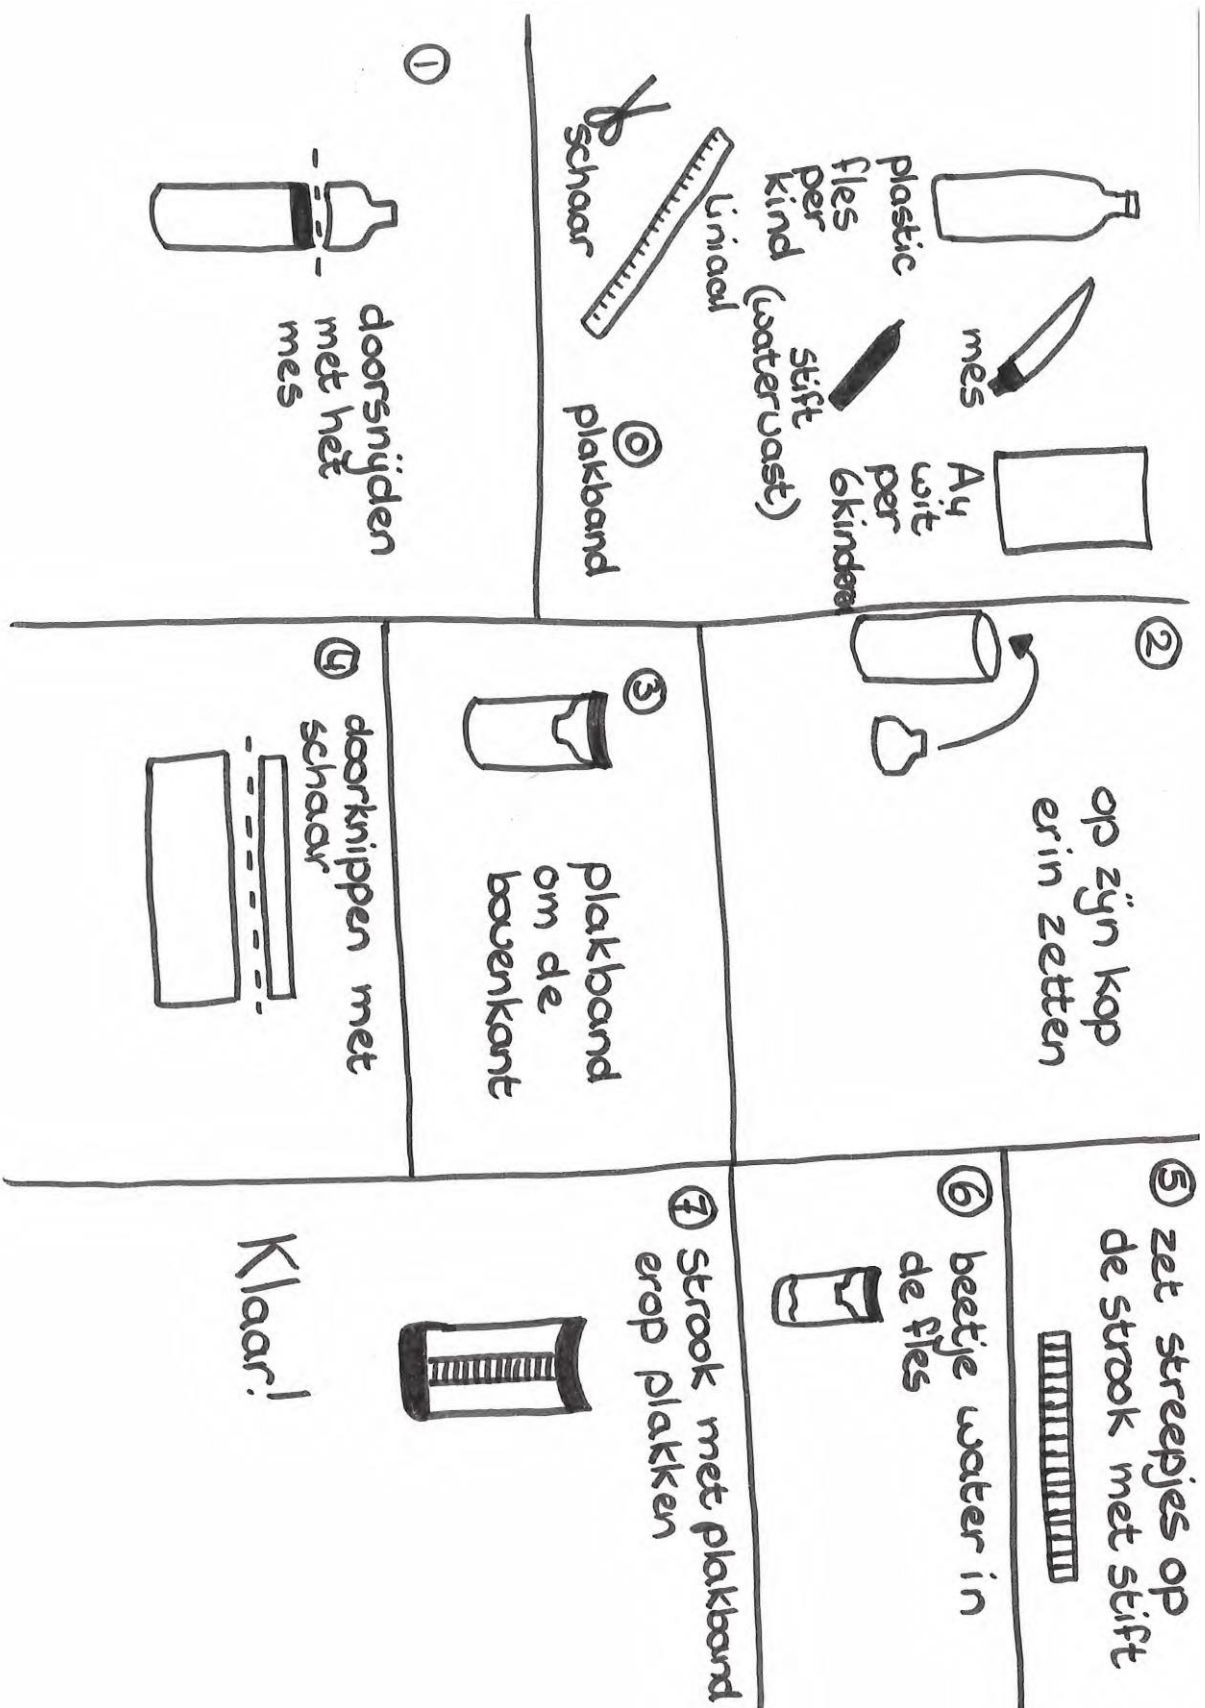 plastic
fles
per
kind
mes
A4
wit
per
6 kinderen
stift
(watervast)
Liniaal
schaar
plakband
1
doorsnijden
met het
mes
2
op zijn kop
erin zetten
3
plakband
om de
bovenkant
4 doorknippen met
schaar
5 zet streepjes op
de strook met stift
6 beetje water in
de fles
7 strook met plakband
erop plakken
Klaar!